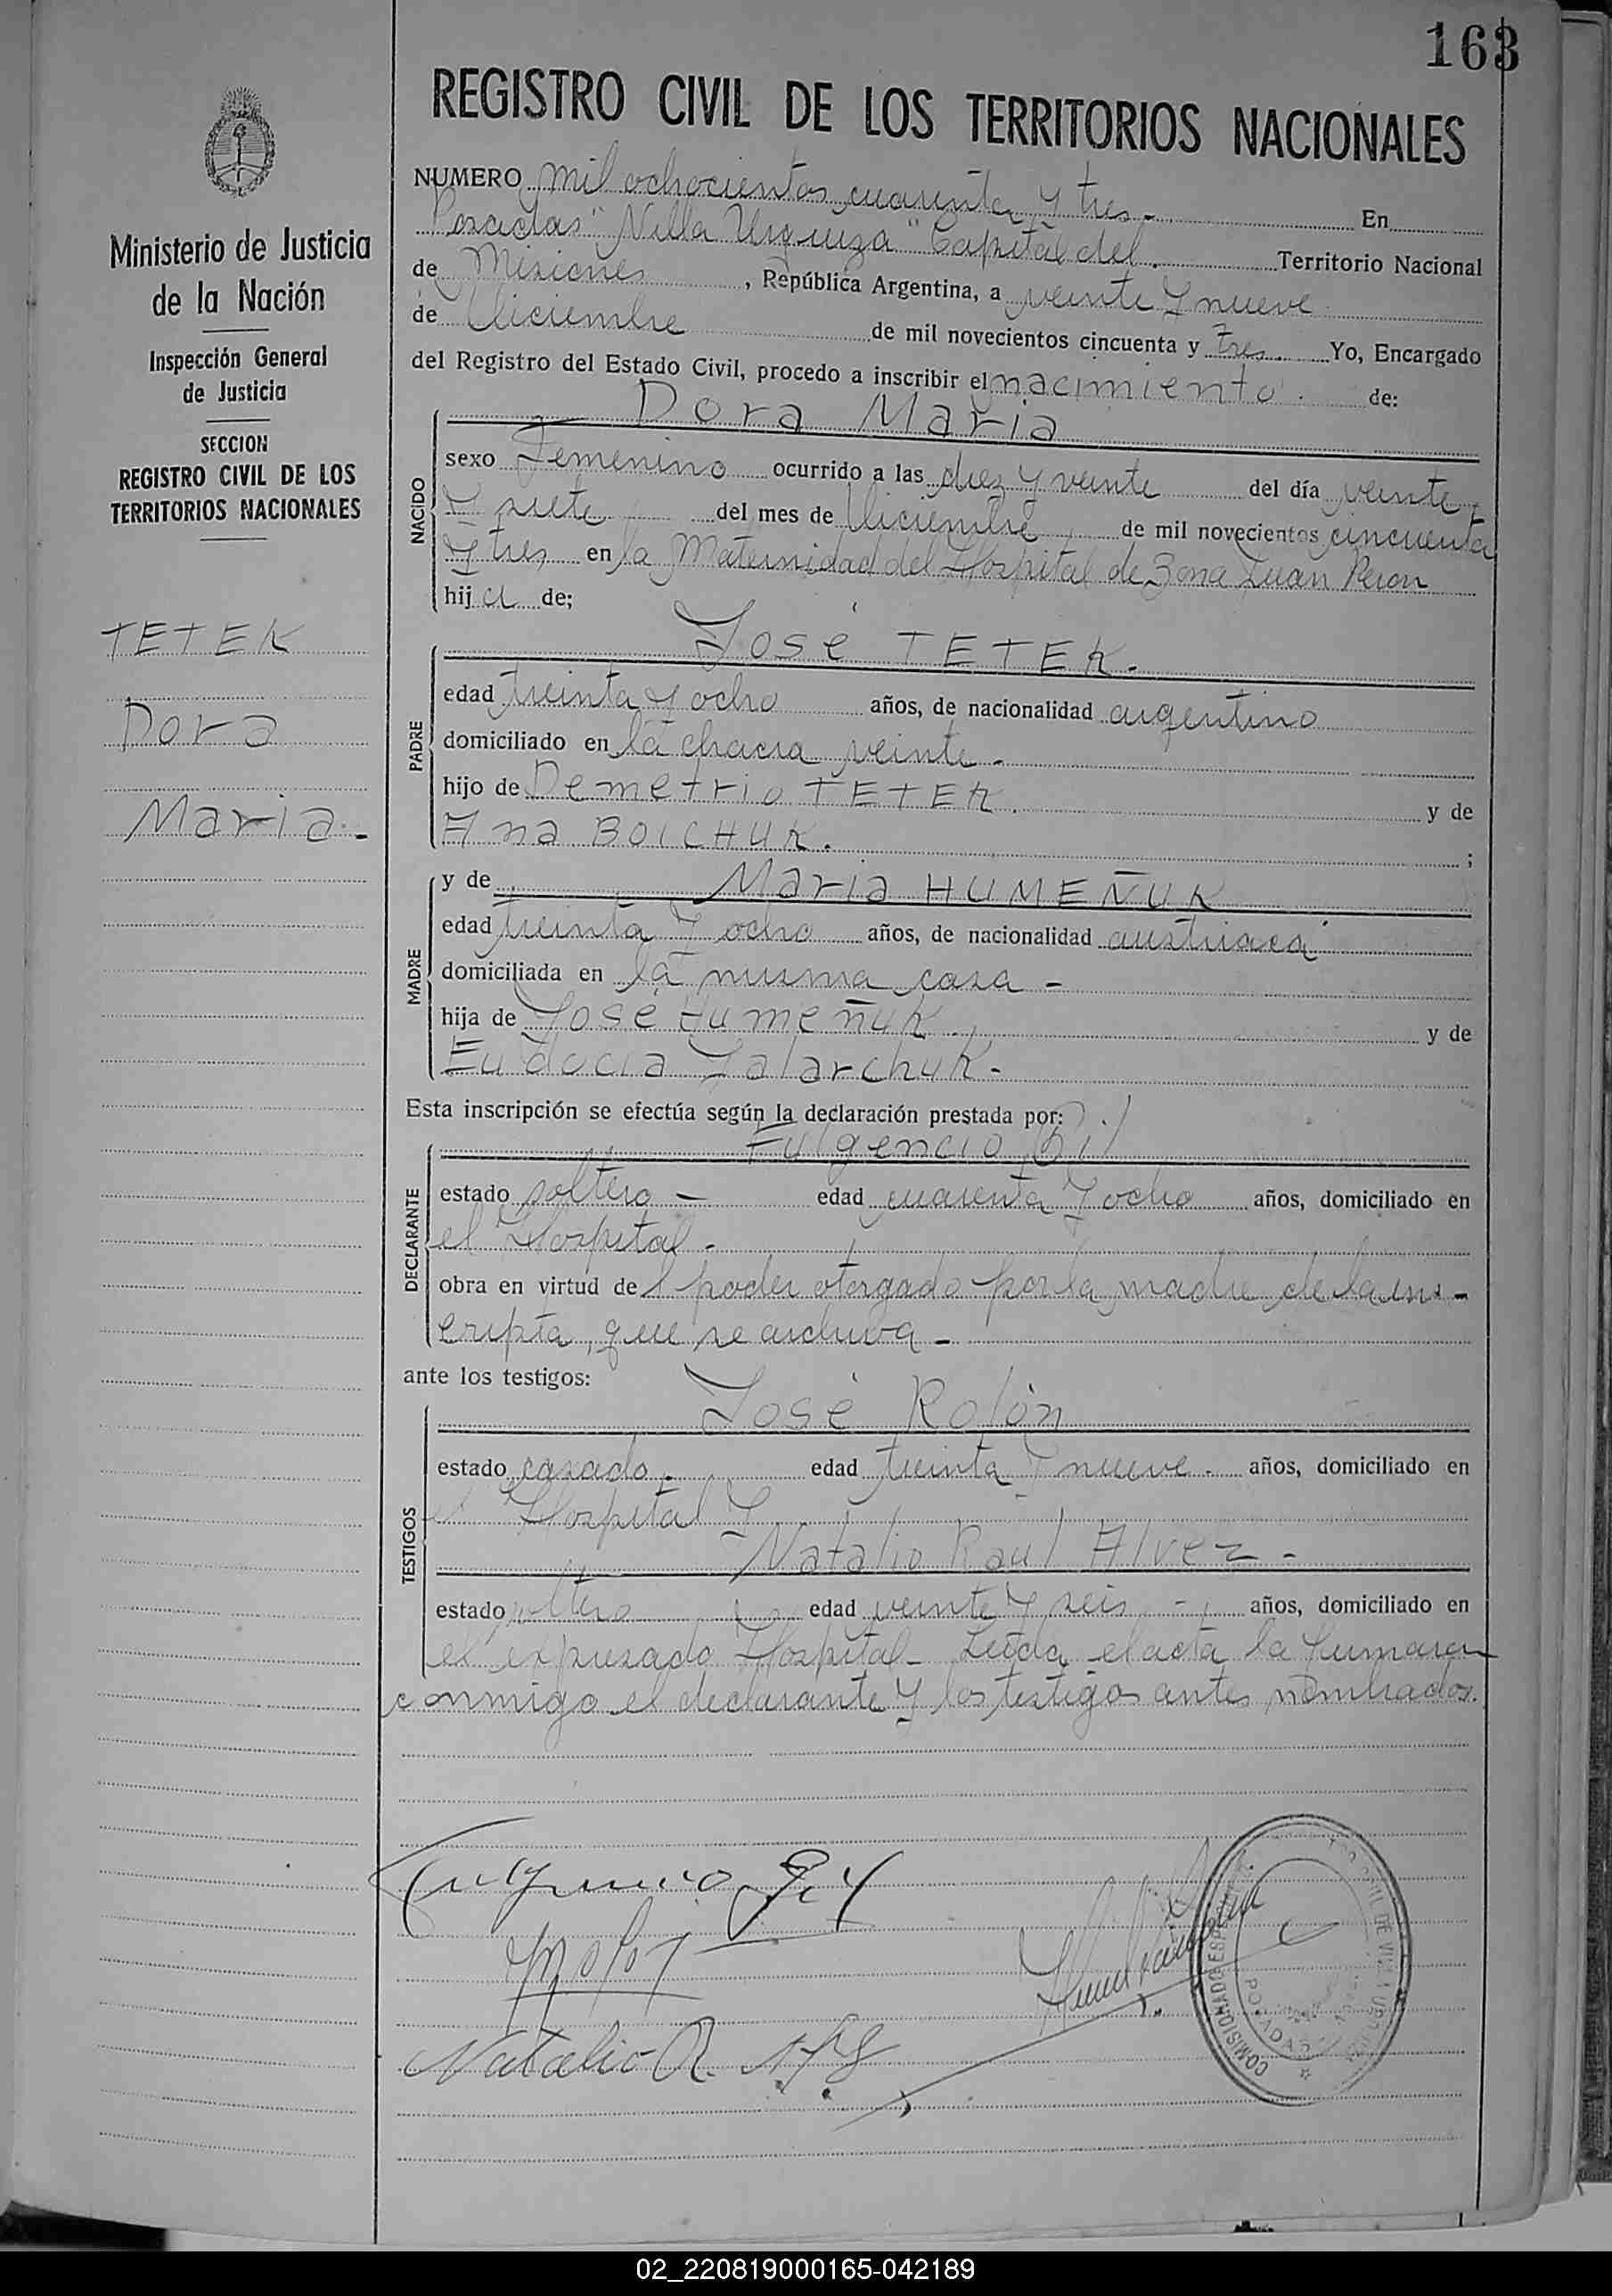 163
REGISTRO CIVIL DE LOS TERRITORIOS NACIONALES
Ministerio de Justicia
de la Nación
Inspección General
de Justicia
SECCION
REGISTRO CIVIL DE LOS
TERRITORIOS NACIONALES
TETEK
Dora
Maria.-
NUMERO mil ochocientos cuarenta y tres.- En
Posadas "Villa Urquiza" Capital del. Territorio Nacional
de Misiones, República Argentina, a veinte y nueve
de Diciembre de mil novecientos cincuenta y tres. Yo, Encargado
del Registro del Estado Civil, procedo a inscribir el nacimiento. de:
Dora Maria
NACIDO
sexo Femenino ocurrido a las diez y veinte del día veinte
y siete del mes de Diciembre de mil novecientos cincuenta
y tres en la Maternidad del Hospital de Zona Juan Peron
hija de;
José TETEK.
PADRE
edad treinta y ocho años, de nacionalidad argentino
domiciliado en la chacra veinte.-
hijo de Demetrio TETEK. y de
Ana BOICHUK. ;
y de Maria HUMEÑUK
MADRE
edad treinta y ocho años, de nacionalidad austriaca
domiciliada en la misma casa -
hija de José Humeñuk. y de
Eudocia Talarchuk.-
Esta inscripción se efectúa según la declaración prestada por:
Fulgencio Gil
DECLARANTE
estado soltero - edad cuarenta y ocho años, domiciliado en
el Hospital.-
obra en virtud del poder otorgado por la madre de la ins-
cripta, que se archiva -
ante los testigos:
José Rolón
TESTIGOS
estado casado. edad treinta y nueve. años, domiciliado en
el Hospital y
Natalio Raul Alvez -
estado soltero edad veinte y seis - años, domiciliado en
el expresado Hospital - Leida el acta la firmaron
conmigo el declarante y los testigos antes nombrados.
Fulgencio Gil
Natalio R.
COMISIONADO ESP
02_220819000165-042189